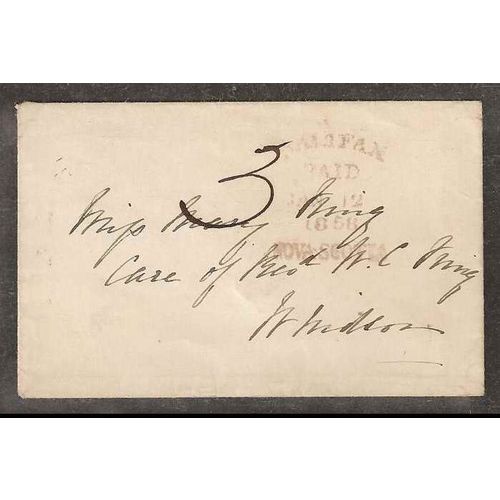 HALIFAX
PAID
12
1858
NOVA-SCOTIA
3
Miss Mary King
Care of Revd W. C. King
Windsor